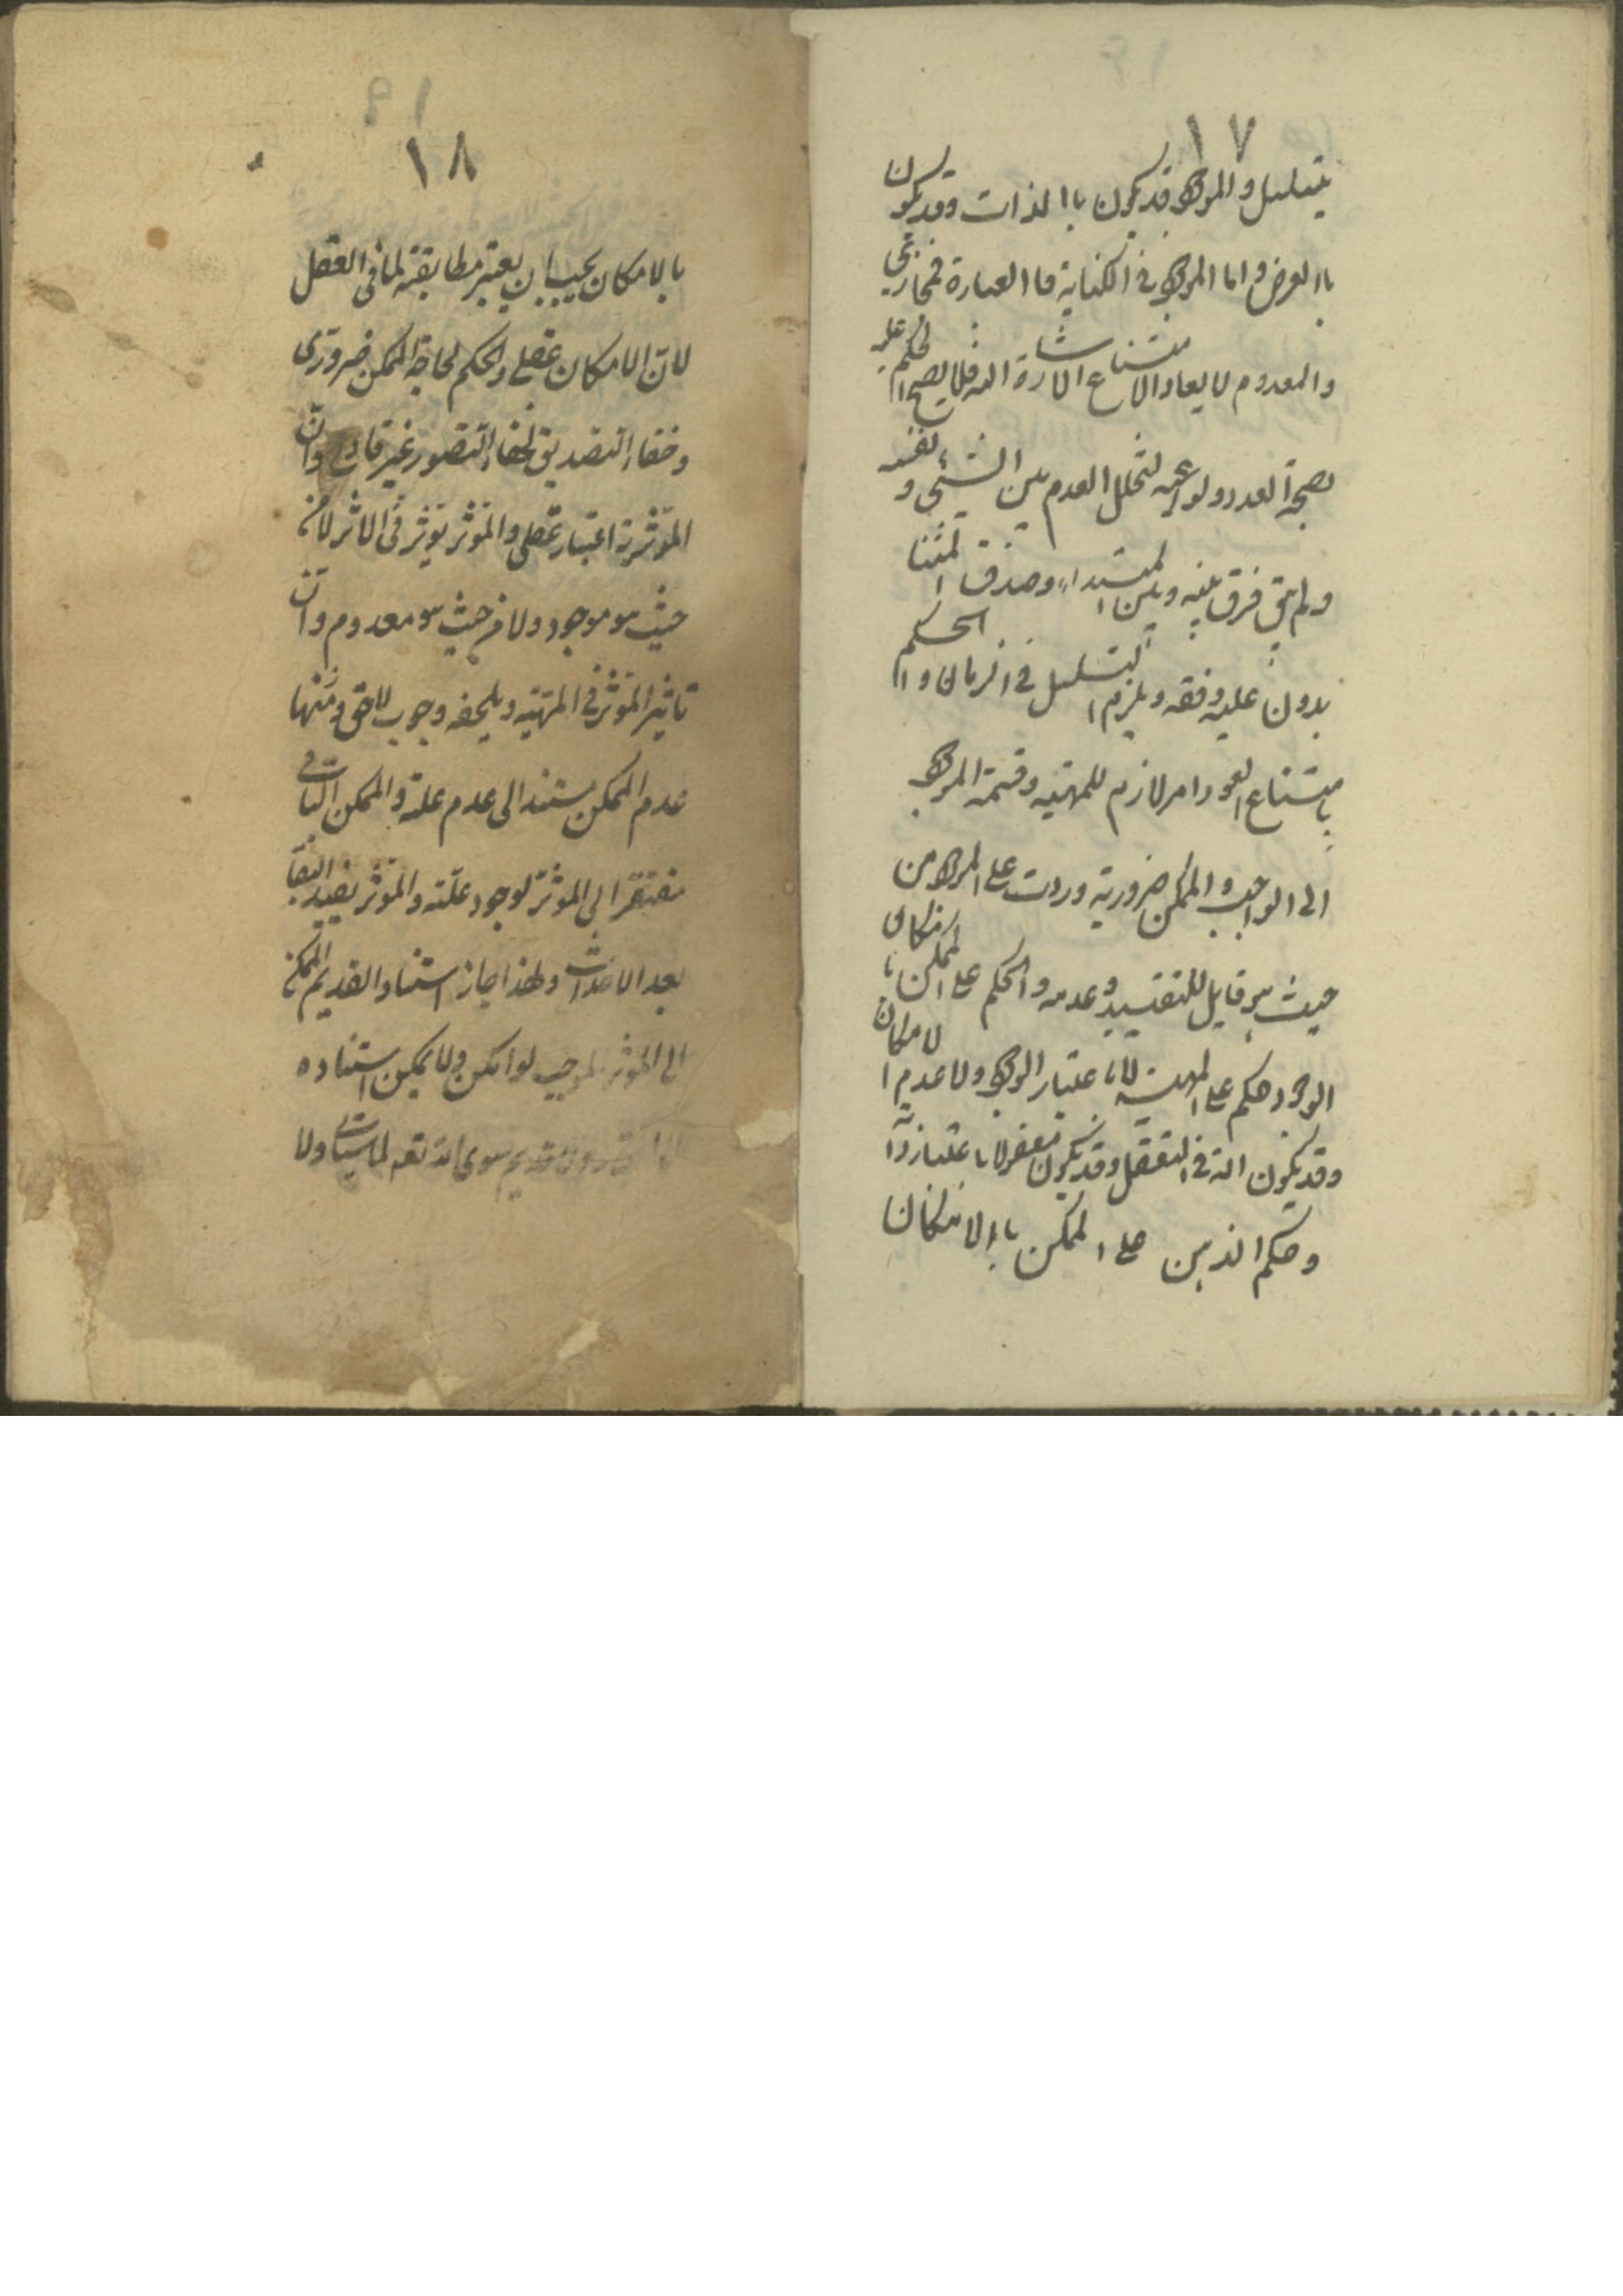 ١٧
يتسلسل والموجود قد يكون باالذات وقد يكون
باالعرض واما الموجود في الكتابة فاالعبارة فمجازي
والمعدوم لا يعاد لامتناع الاشارة اليه فلا يصح الحكم عليه
بصحة العود ولو اعيد لتخلل العدم بين الشيئ و نفسه
ولم يبق فرق بينه وبين المبتداء وصدق المتقا
بلان عليه دفعة ويلزم التسلسل في الزمان والحكم
بامتناع العود لامر لازم للمهية وقسمة الموجود
الى الواجب والممكن ضرورية وردت على الموجود من
حيث هو قابل للتقييد وعدمه والحكم على الممكن بامكان
الوجود حكم على المهية لا باعتبار الوجود ولا عدم الامكان
وقد يكون آلة في التعقل وقد يكون معقولا باعتبار ذاته
وحكم الذهن على الممكن باالامكان
١٨
بالامكان يجب ان يعتبر مطابقته لما في العقل
لانّ الامكان عقلي والحكم لحاجة الممكن ضروري
وخفاء التصديق لخفاء التصور غير قادح وانّ
المؤثرية اعتبار عقلي والمؤثر يؤثر في الاثر لا من
حيث هو موجود ولا من حيث هو معدوم وانّ
تاثير المؤثر في المهية ويلحقه وجوب لاحق ومنها
عدم الممكن مستند الى عدم علته والممكن الباقي
مفتقر الى المؤثر لوجود علته والمؤثر يفيد البقا
بعد الاحداث ولهذا جاز استناد القديم الممكن
الى المؤثر الموجب لو امكن ولا يمكن استناده
ولا قديم سوى الله تعه لما سيأتي ولا